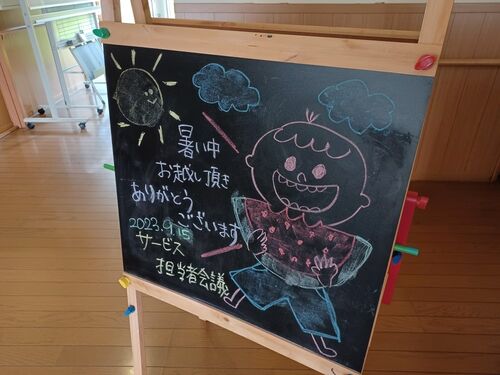 暑い中
お越し頂き
ありがとう
ございます
2023.9.15
サービス
担当者会議